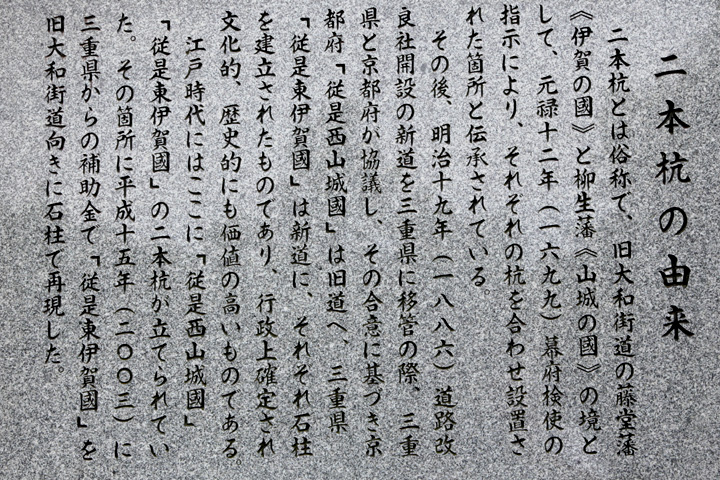 二本杭の由来
二本杭とは俗称で、旧大和街道の藤堂藩
《伊賀の國》と柳生藩《山城の國》の境と
して、元禄十二年（一六九九）幕府検使の
指示により、それぞれの杭を合わせ設置さ
れた箇所と伝承されている。
その後、明治十九年（一八八六）道路改
良社開設の新道を三重県に移管の際、三重
県と京都府が協議し、その合意に基づき京
都府「従是西山城國」は旧道へ、三重県
「従是東伊賀國」は新道に、それぞれ石柱
を建立されたものであり、行政上確定され
文化的、歴史的にも価値の高いものである。
江戸時代にはここに「従是西山城國」
「従是東伊賀國」の二本杭が立てられてい
た。その箇所に平成十五年（二〇〇三）に
三重県からの補助金で「従是東伊賀國」を
旧大和街道向きに石柱で再現した。